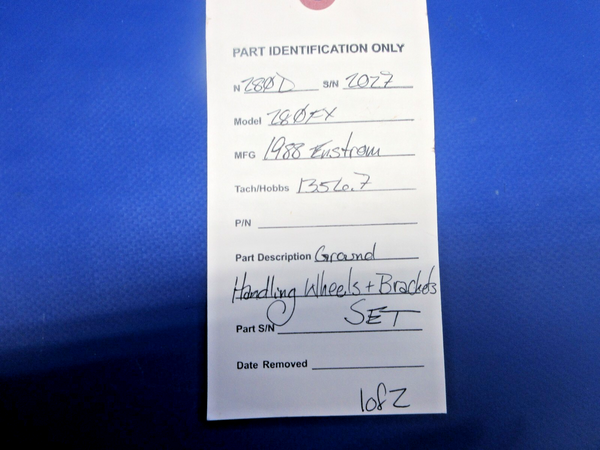 PART IDENTIFICATION ONLY
N 280D S/N 2027
Model 280FX
MFG 1988 Enstrom
Tach/Hobbs 1356.7
P/N
Part Description Ground
Handling Wheels + Brackets
SET
Part S/N
Date Removed
1 of 2